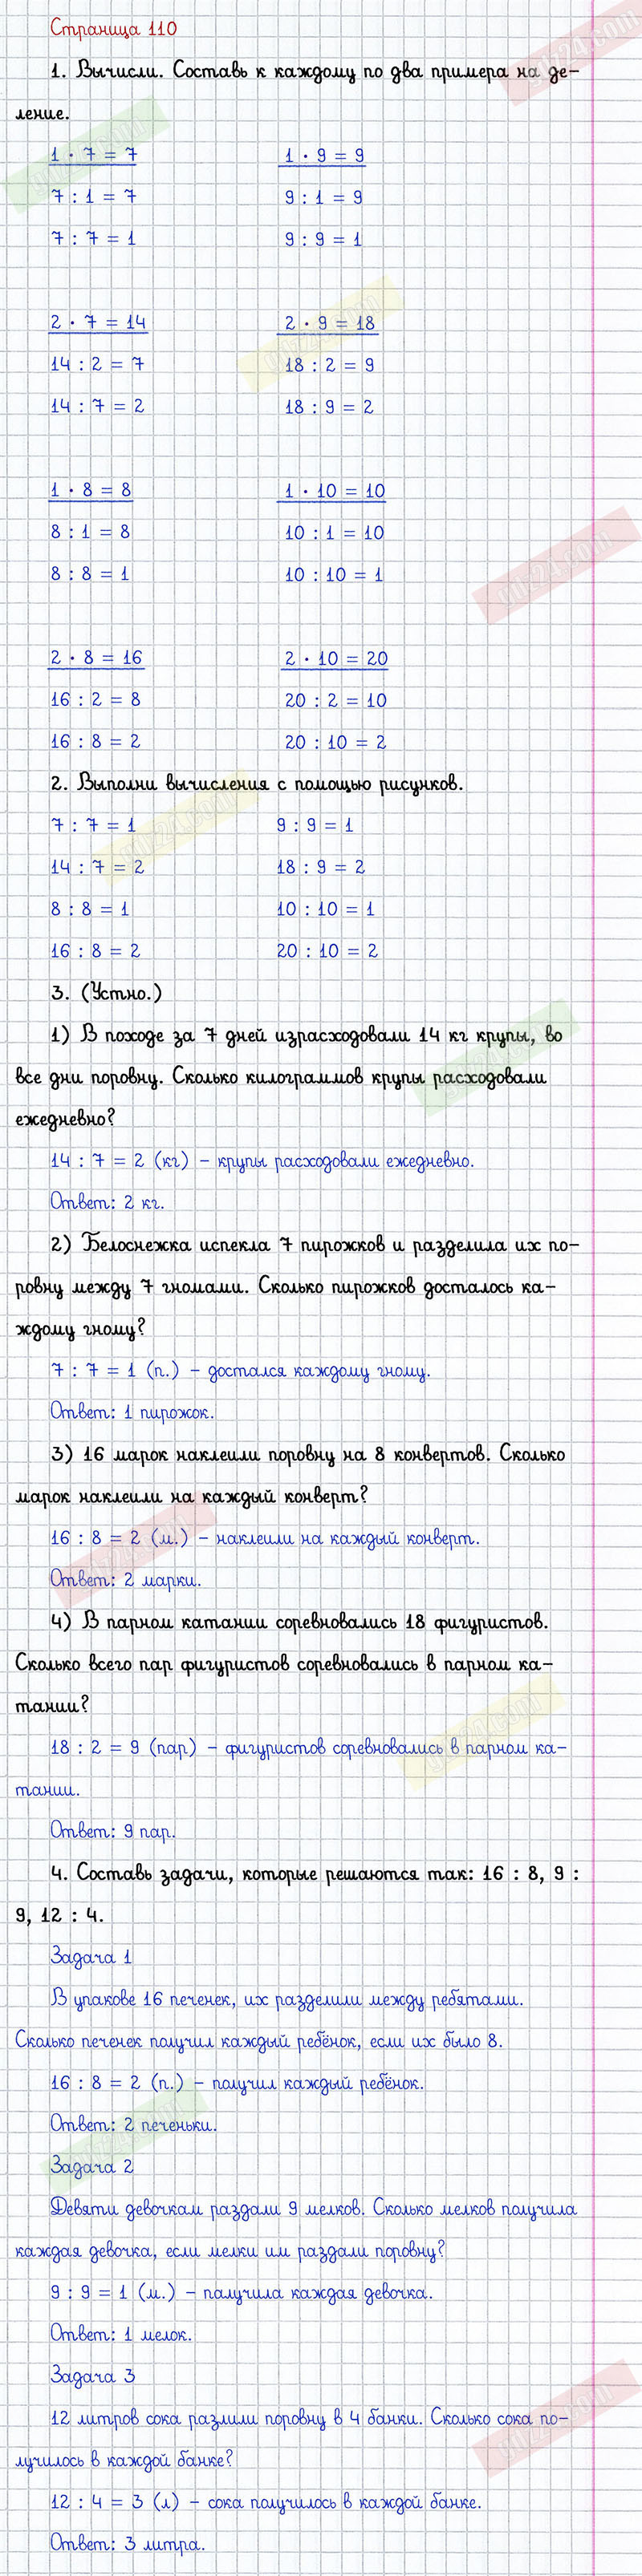 Страница 110
1. Вычисли. Составь к каждому по два примера на де-
ление.
1 · 7 = 7 1 · 9 = 9
7 : 1 = 7 9 : 1 = 9
7 : 7 = 1 9 : 9 = 1
2 · 7 = 14 2 · 9 = 18
14 : 2 = 7 18 : 2 = 9
14 : 7 = 2 18 : 9 = 2
1 · 8 = 8 1 · 10 = 10
8 : 1 = 8 10 : 1 = 10
8 : 8 = 1 10 : 10 = 1
2 · 8 = 16 2 · 10 = 20
16 : 2 = 8 20 : 2 = 10
16 : 8 = 2 20 : 10 = 2
2. Выполни вычисления с помощью рисунков.
7 : 7 = 1 9 : 9 = 1
14 : 7 = 2 18 : 9 = 2
8 : 8 = 1 10 : 10 = 1
16 : 8 = 2 20 : 10 = 2
3. (Устно.)
1) В походе за 7 дней израсходовали 14 кг крупы, во
все дни поровну. Сколько килограммов крупы расходовали
ежедневно?
14 : 7 = 2 (кг) – крупы расходовали ежедневно.
Ответ: 2 кг.
2) Белоснежка испекла 7 пирожков и разделила их по-
ровну между 7 гномами. Сколько пирожков досталось ка-
ждому гному?
7 : 7 = 1 (п.) – достался каждому гному.
Ответ: 1 пирожок.
3) 16 марок наклеили поровну на 8 конвертов. Сколько
марок наклеили на каждый конверт?
16 : 8 = 2 (м.) – наклеили на каждый конверт.
Ответ: 2 марки.
4) В парном катании соревновались 18 фигуристов.
Сколько всего пар фигуристов соревновались в парном ка-
тании?
18 : 2 = 9 (пар) – фигуристов соревновались в парном ка-
тании.
Ответ: 9 пар.
4. Составь задачи, которые решаются так: 16 : 8, 9 :
9, 12 : 4.
Задача 1
В упакове 16 печенек, их разделили между ребятами.
Сколько печенек получил каждый ребёнок, если их было 8.
16 : 8 = 2 (п.) – получил каждый ребёнок.
Ответ: 2 печеньки.
Задача 2
Девяти девочкам раздали 9 мелков. Сколько мелков получила
каждая девочка, если мелки им раздали поровну?
9 : 9 = 1 (м.) – получила каждая девочка.
Ответ: 1 мелок.
Задача 3
12 литров сока разлили поровну в 4 банки. Сколько сока по-
лучилось в каждой банке?
12 : 4 = 3 (л) – сока получилось в каждой банке.
Ответ: 3 литра.